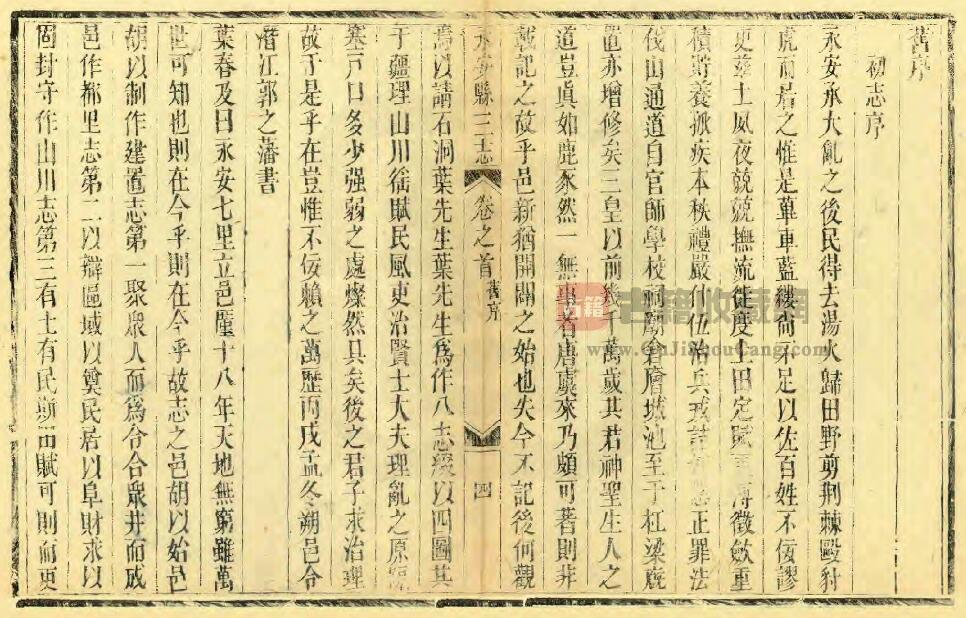 舊序
初志序
永安承大亂之後民得去湯火歸田野剪荆棘毆豺
虎而居之惟是蓽車藍縷尚不足以佐百姓不佞謬
吏兹土夙夜兢兢撫流徙度土田定賦 徵斂重
積貯養孤疾本秩禮嚴什伍治兵戎詰 正罪法
伐山通道自官師學校祠廟倉廥城池至于杠梁麃
置亦增修矣三皇以前幾千萬歲其若神聖生人之
道豈眞如鹿豕然一無事者唐虞來乃頗可著則非
載記之故乎邑新猶開闢之始也失今不記後何觀
焉以請石洞葉先生葉先生爲作八志綬以四圖其
于疆理山川徭賦民風吏治賢士大夫理亂之原
塞戸口多少强弱之處燦然具矣後之君子求治理
故于是乎在豈惟不佞賴之萬歷丙戌孟冬朔邑令
潛江郭之藩書
葉春及曰永安七里立邑厪十八年天地無窮雖萬
世可知也則在今乎則在今乎故志之邑胡以始邑
胡以制作建置志第一聚衆人而爲合合衆井而成
邑作都里志第二以辯區域以奠民居以阜財求以
固封守作山川志第三有土有民斯田賦可則而更
永安縣三志
卷之首
舊序
四
古籍
书籍收藏網
www.GuJiShouCang.com